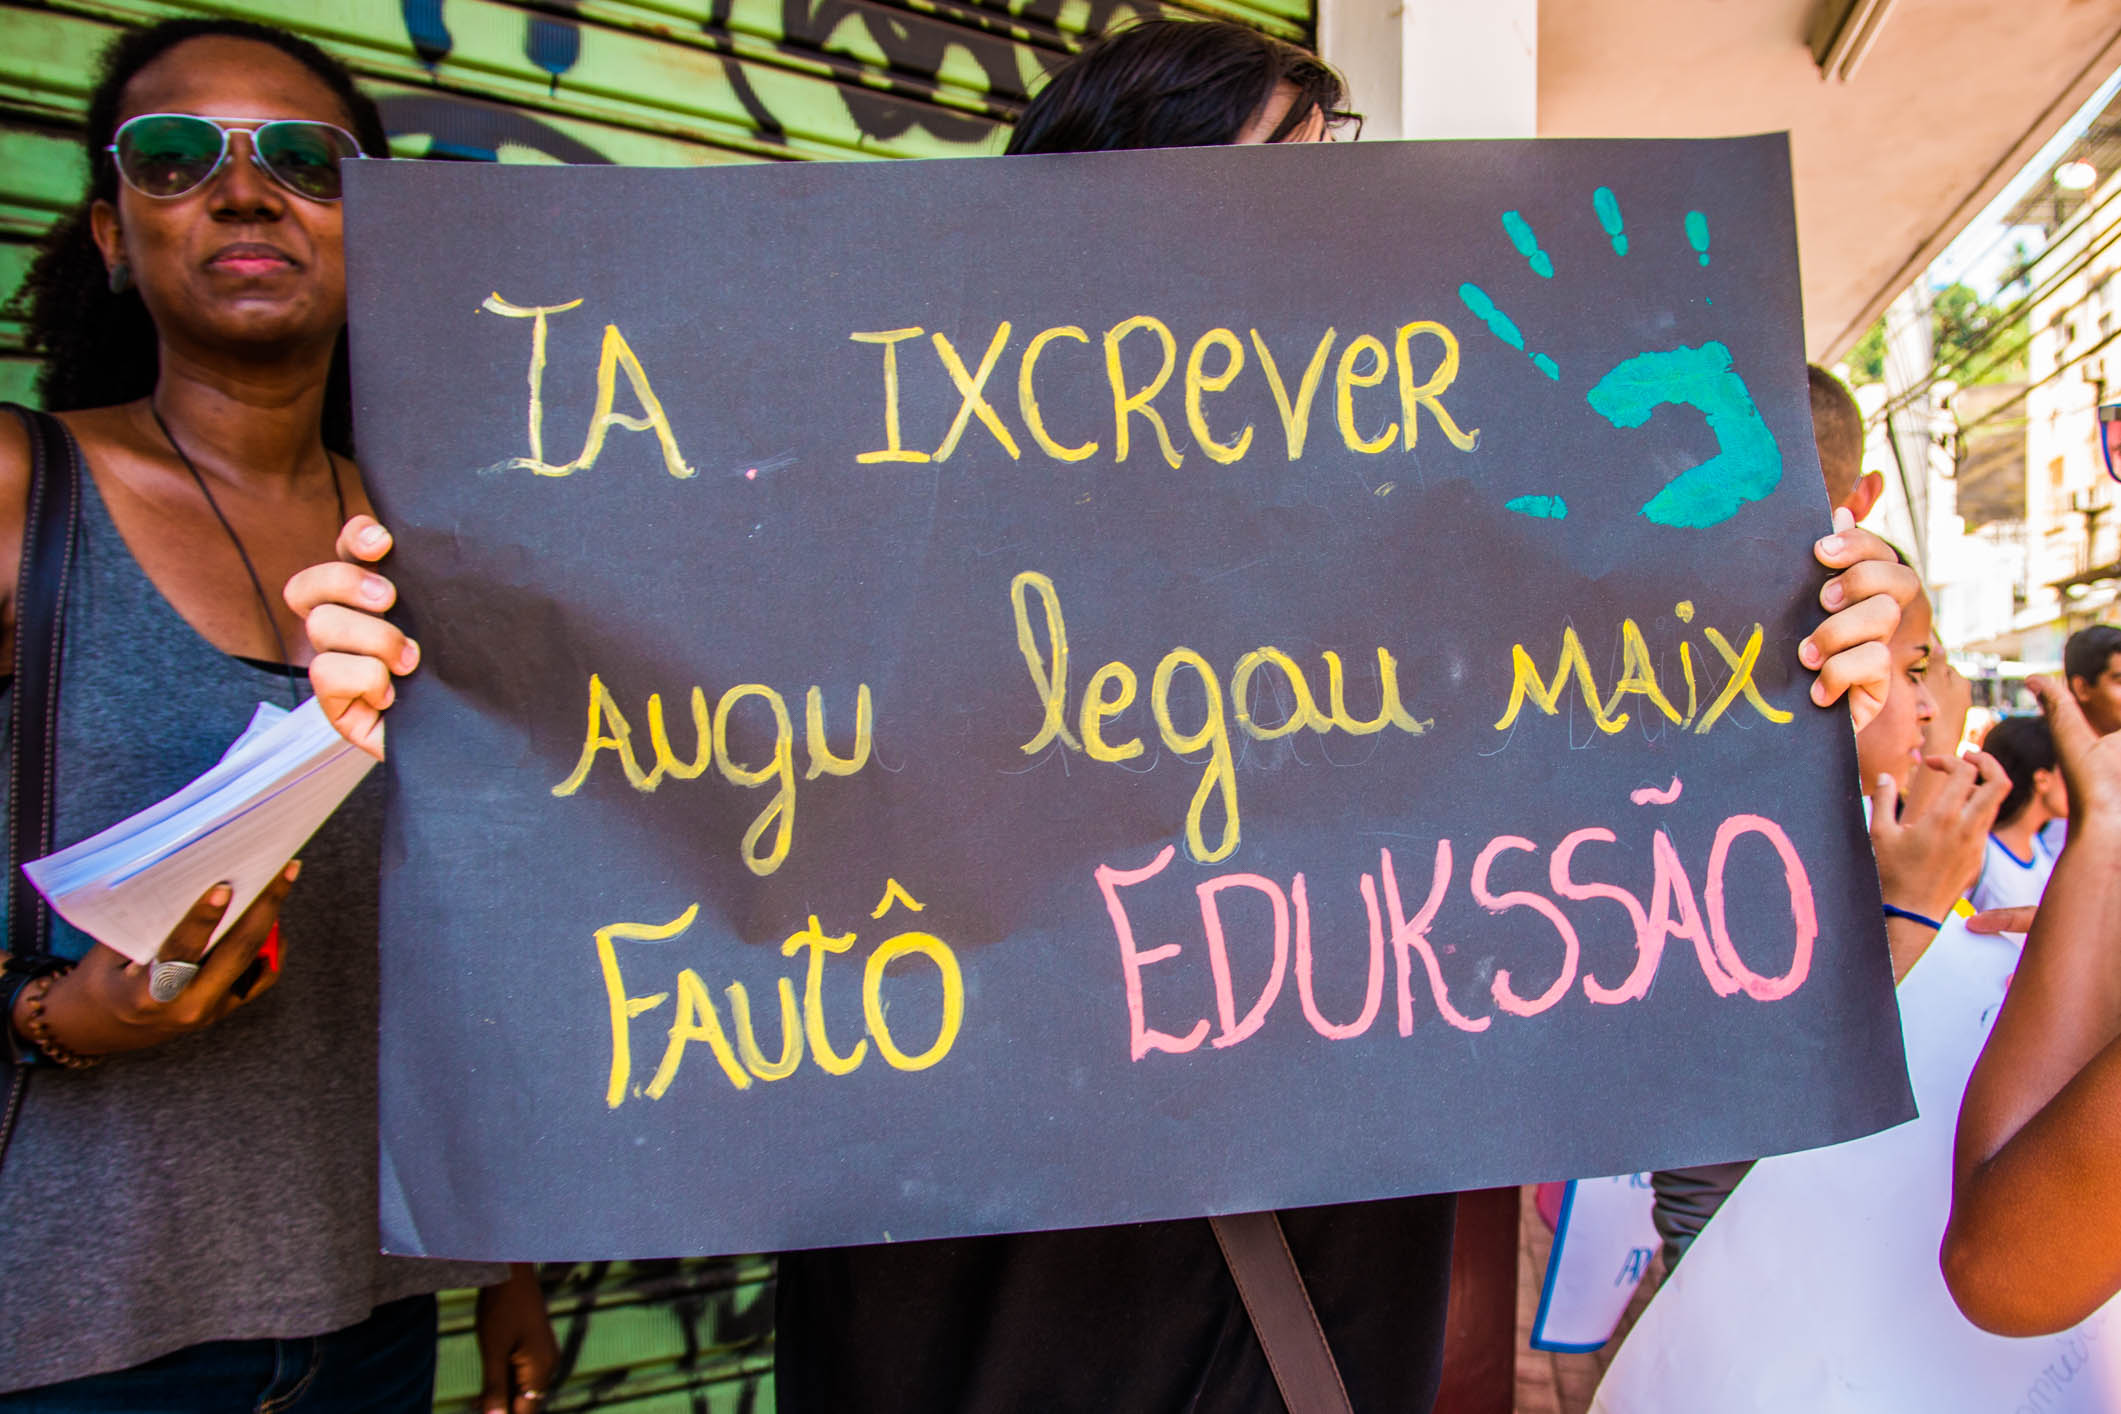 IA IXCReVeR
AUgU legau MAiX
FAUTÔ EDUKSSÃO